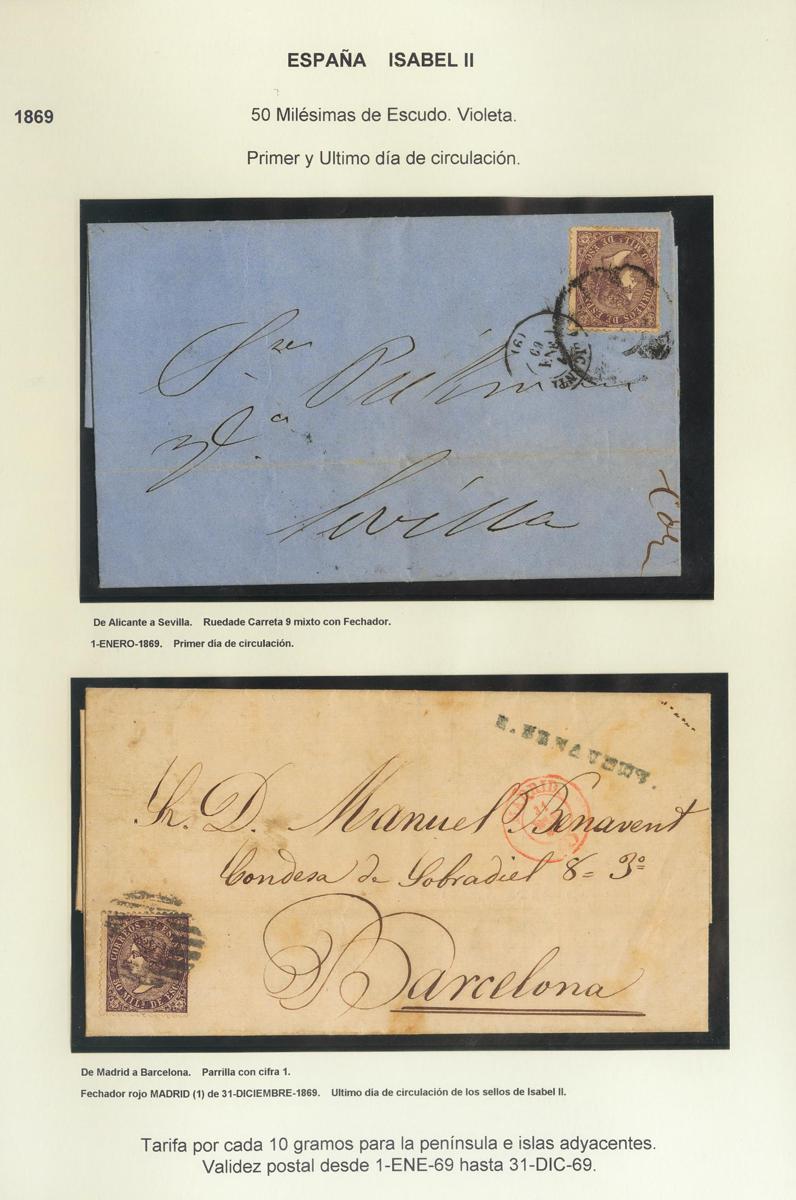 ESPAÑA ISABEL II
1869
50 Milésimas de Escudo. Violeta.
Primer y Ultimo día de circulación.
CORREOS DE ESPA
50 MIL. DE ESC
ENE
69
Sres
Sevilla
De Alicante a Sevilla. Ruedade Carreta 9 mixto con Fechador.
1-ENERO-1869. Primer día de circulación.
BENAVENT.
MADRID
Sr. D. Manuel Benavent
Condesa de Sobradiel 8= 3º
Barcelona
CORREOS DE ES
50 MILS DE ESC
De Madrid a Barcelona. Parrilla con cifra 1.
Fechador rojo MADRID (1) de 31-DICIEMBRE-1869. Ultimo día de circulación de los sellos de Isabel II.
Tarifa por cada 10 gramos para la península e islas adyacentes.
Validez postal desde 1-ENE-69 hasta 31-DIC-69.